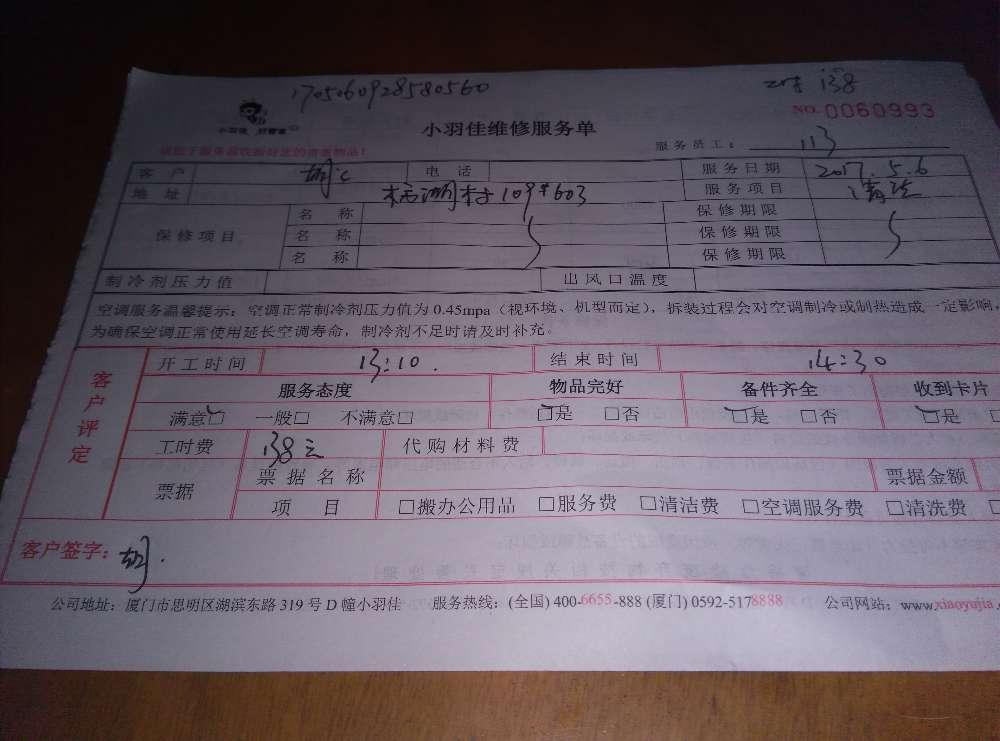 1705060928580560
138
NO. 0060993
小羽佳 好管家
小羽佳维修服务单
服务员工: 113
请您于服务前收拾好您的贵重物品!
客户 胡 电话 服务日期 2017.5.6
地址 栖湖村109#603 服务项目 清洗
保修项目 名称 保修期限
名称 保修期限
名称 保修期限
制冷剂压力值 出风口温度
空调服务温馨提示: 空调正常制冷剂压力值为 0.45mpa(视环境、机型而定),拆装过程会对空调制冷或制热造成一定影响,
为确保空调正常使用延长空调寿命,制冷剂不足时请及时补充。
客户评定
开工时间 13:10. 结束时间 14:30
服务态度 物品完好 备件齐全 收到卡片
满意□ 一般□ 不满意□ □是 □否 □是 □否 □是
工时费 138元 代购材料费
票据 票据名称 票据金额
项目 □搬办公用品 □服务费 □清洁费 □空调服务费 □清洗费
客户签字: 胡.
公司地址: 厦门市思明区湖滨东路 319 号 D 幢小羽佳 服务热线: (全国) 400-6655-888 (厦门) 0592-5178888 公司网站: www.xiaoyujia.